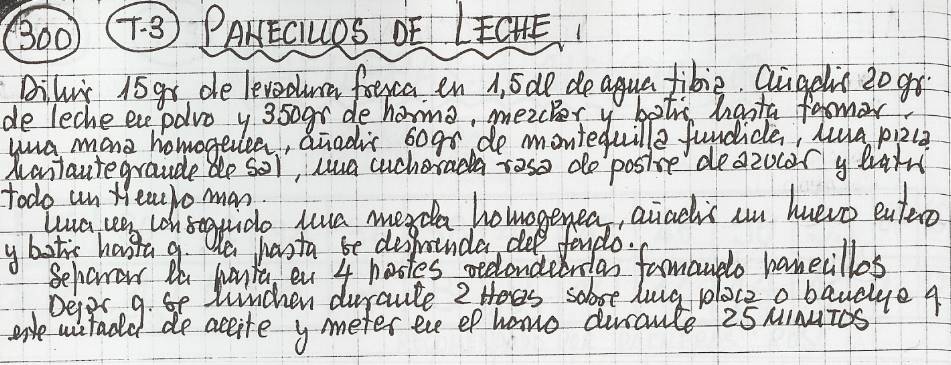 300 T-3 PANECILLOS DE LECHE.
Diluir 15gr de levadura fresca en 1,5dl de agua tibia. Añadir 20 gr.
de leche en polvo y 350gr de harina, mezclar y batir hasta formar
una masa homogenea, añadir 60gr de mantequilla fundida, una pizca
bastante grande de sal, una cucharada rasa de postre de azucar y batir
todo un tiempo mas.
Una vez conseguido una mezcla homogenea, añadir un huevo entero
y batir hasta q. la pasta se desprenda del fondo.
Separar la pasta en 4 partes redondearlas formando panecillos
Dejar q. se hinchen durante 2 Horas sobre una placa o bandeja q
este untada de aceite y meter en el horno durante 25 MINUTOS